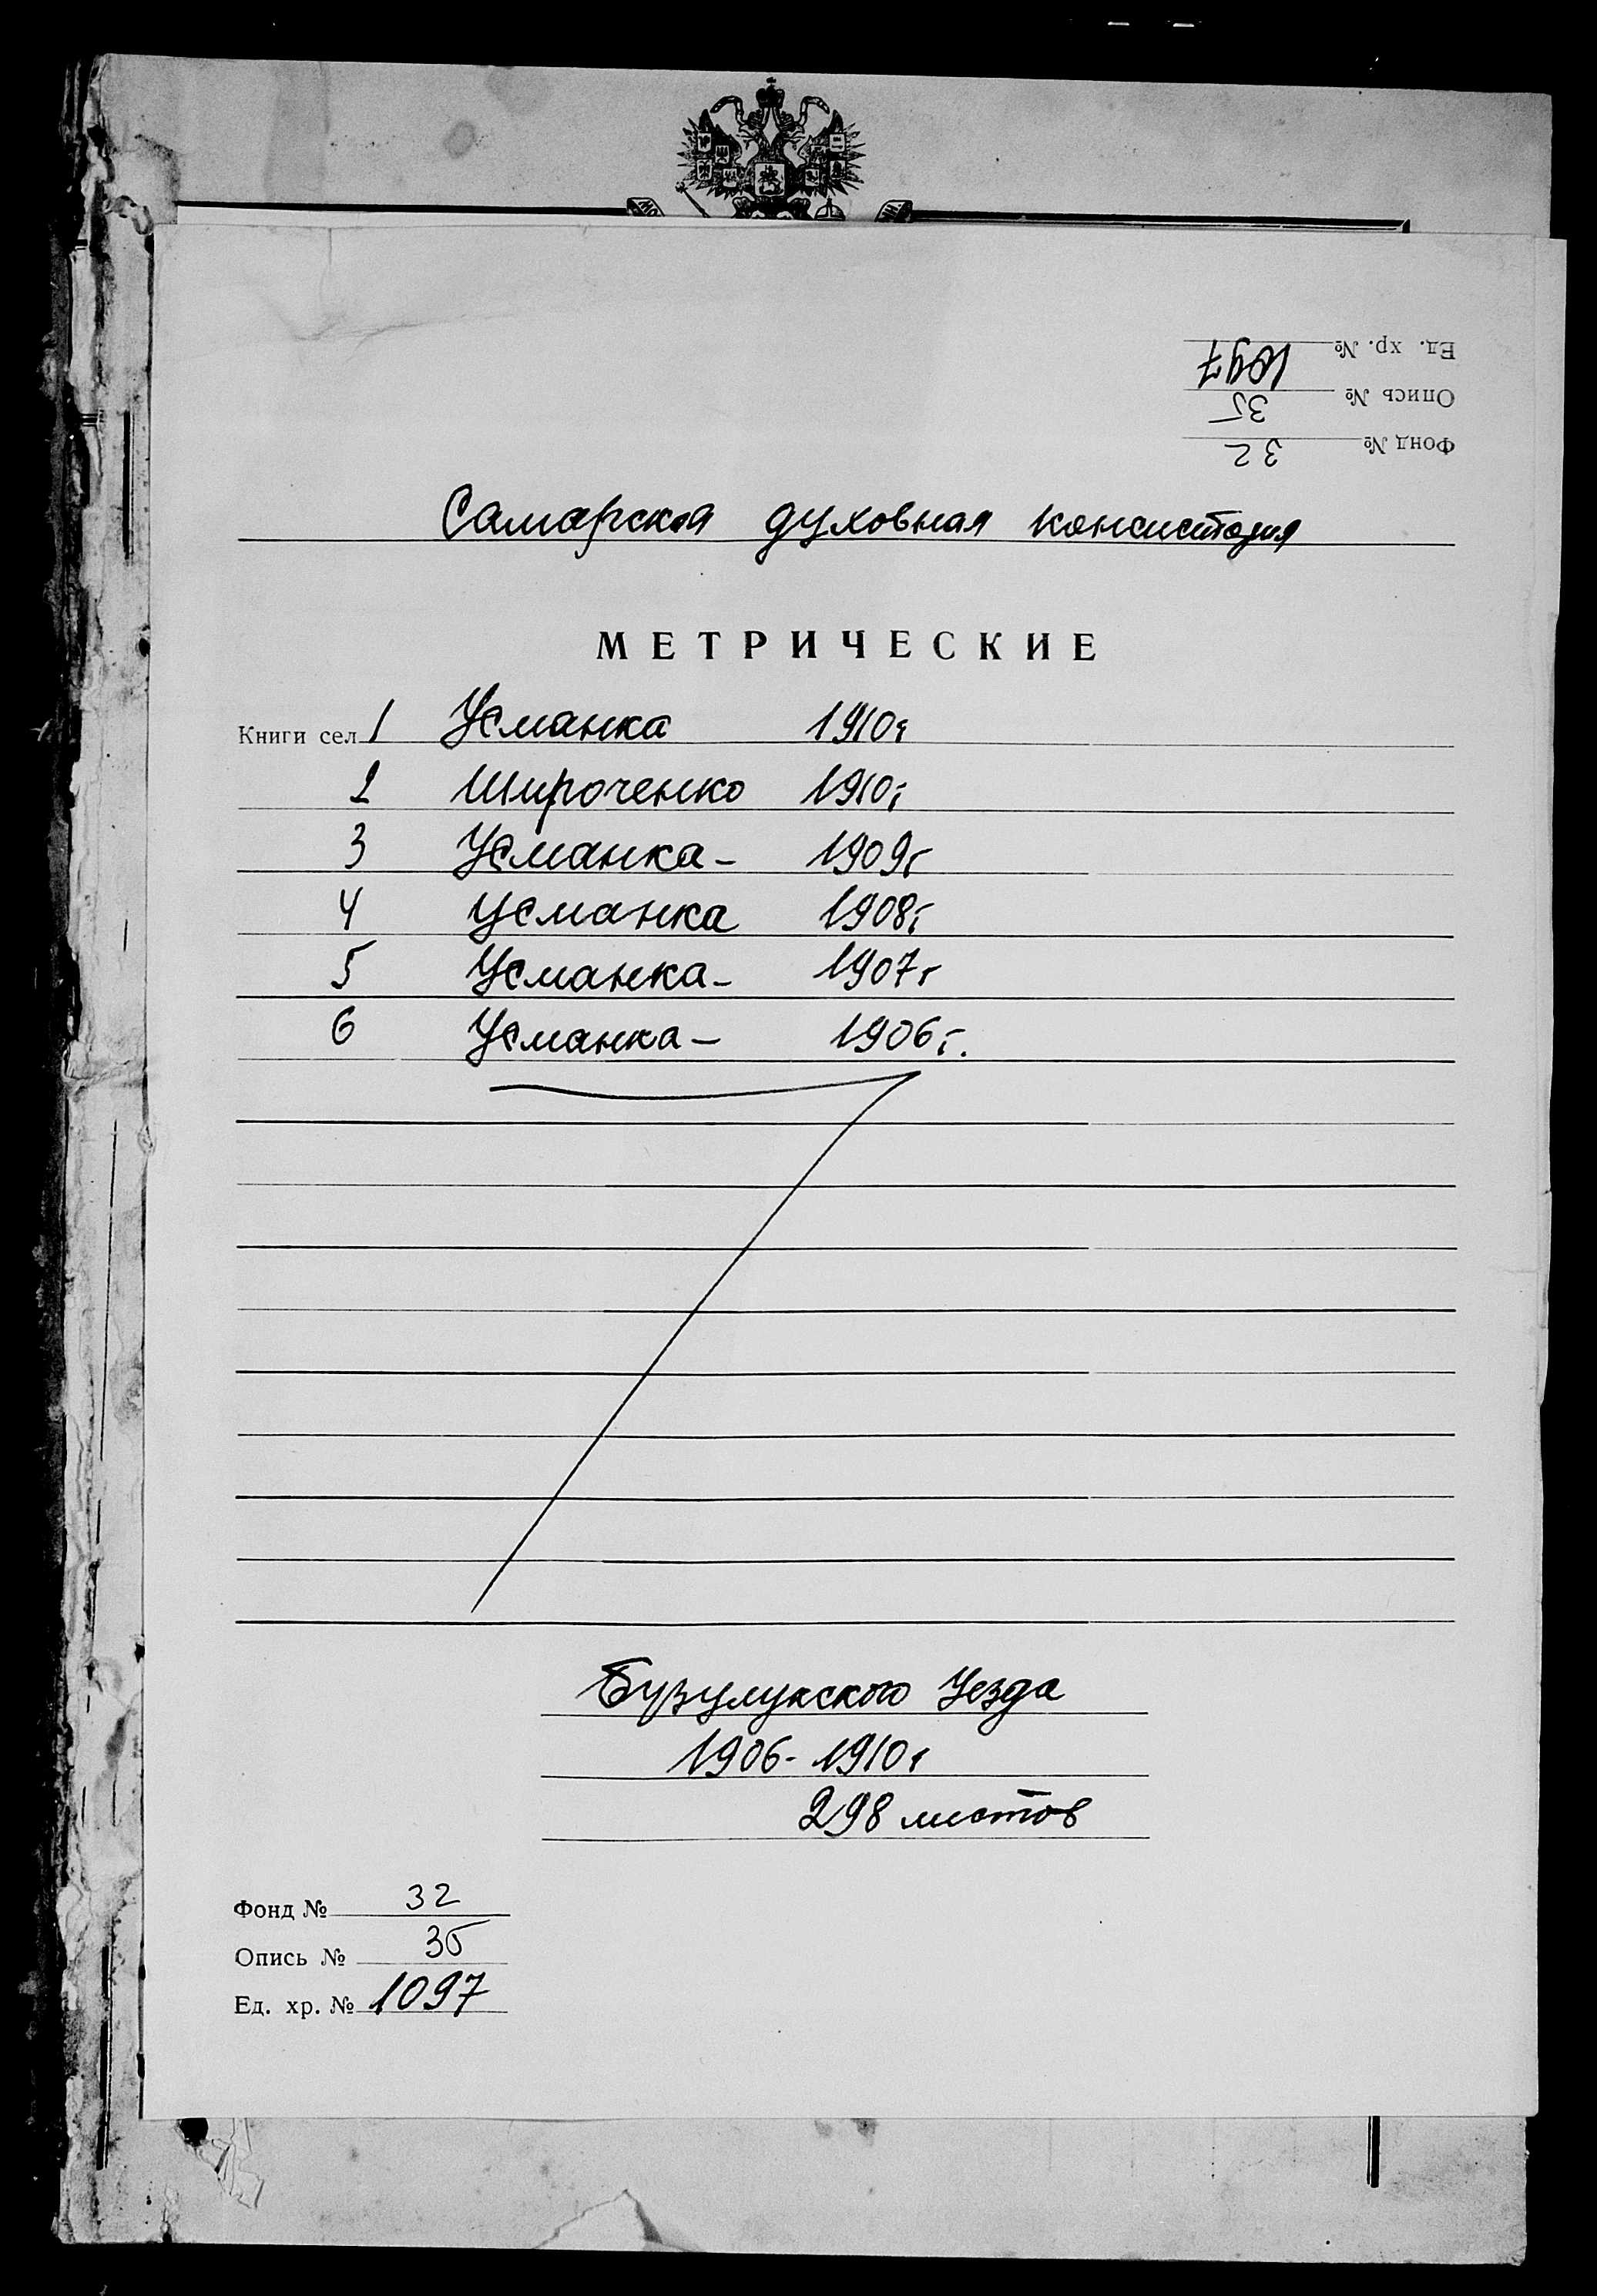 Ед. хр. № 1097
Опись № 35
Фонд № 32
Самарская духовная консистория
МЕТРИЧЕСКИЕ
Книги сел 1 Усманка 1910г
2 Широченко 1910г
3 Усманка - 1909г
4 Усманка 1908г
5 Усманка - 1907г
6 Усманка - 1906г.
Бузулукского Уезда
1906-1910г
298 листов
Фонд № 32
Опись № 35
Ед. хр. № 1097